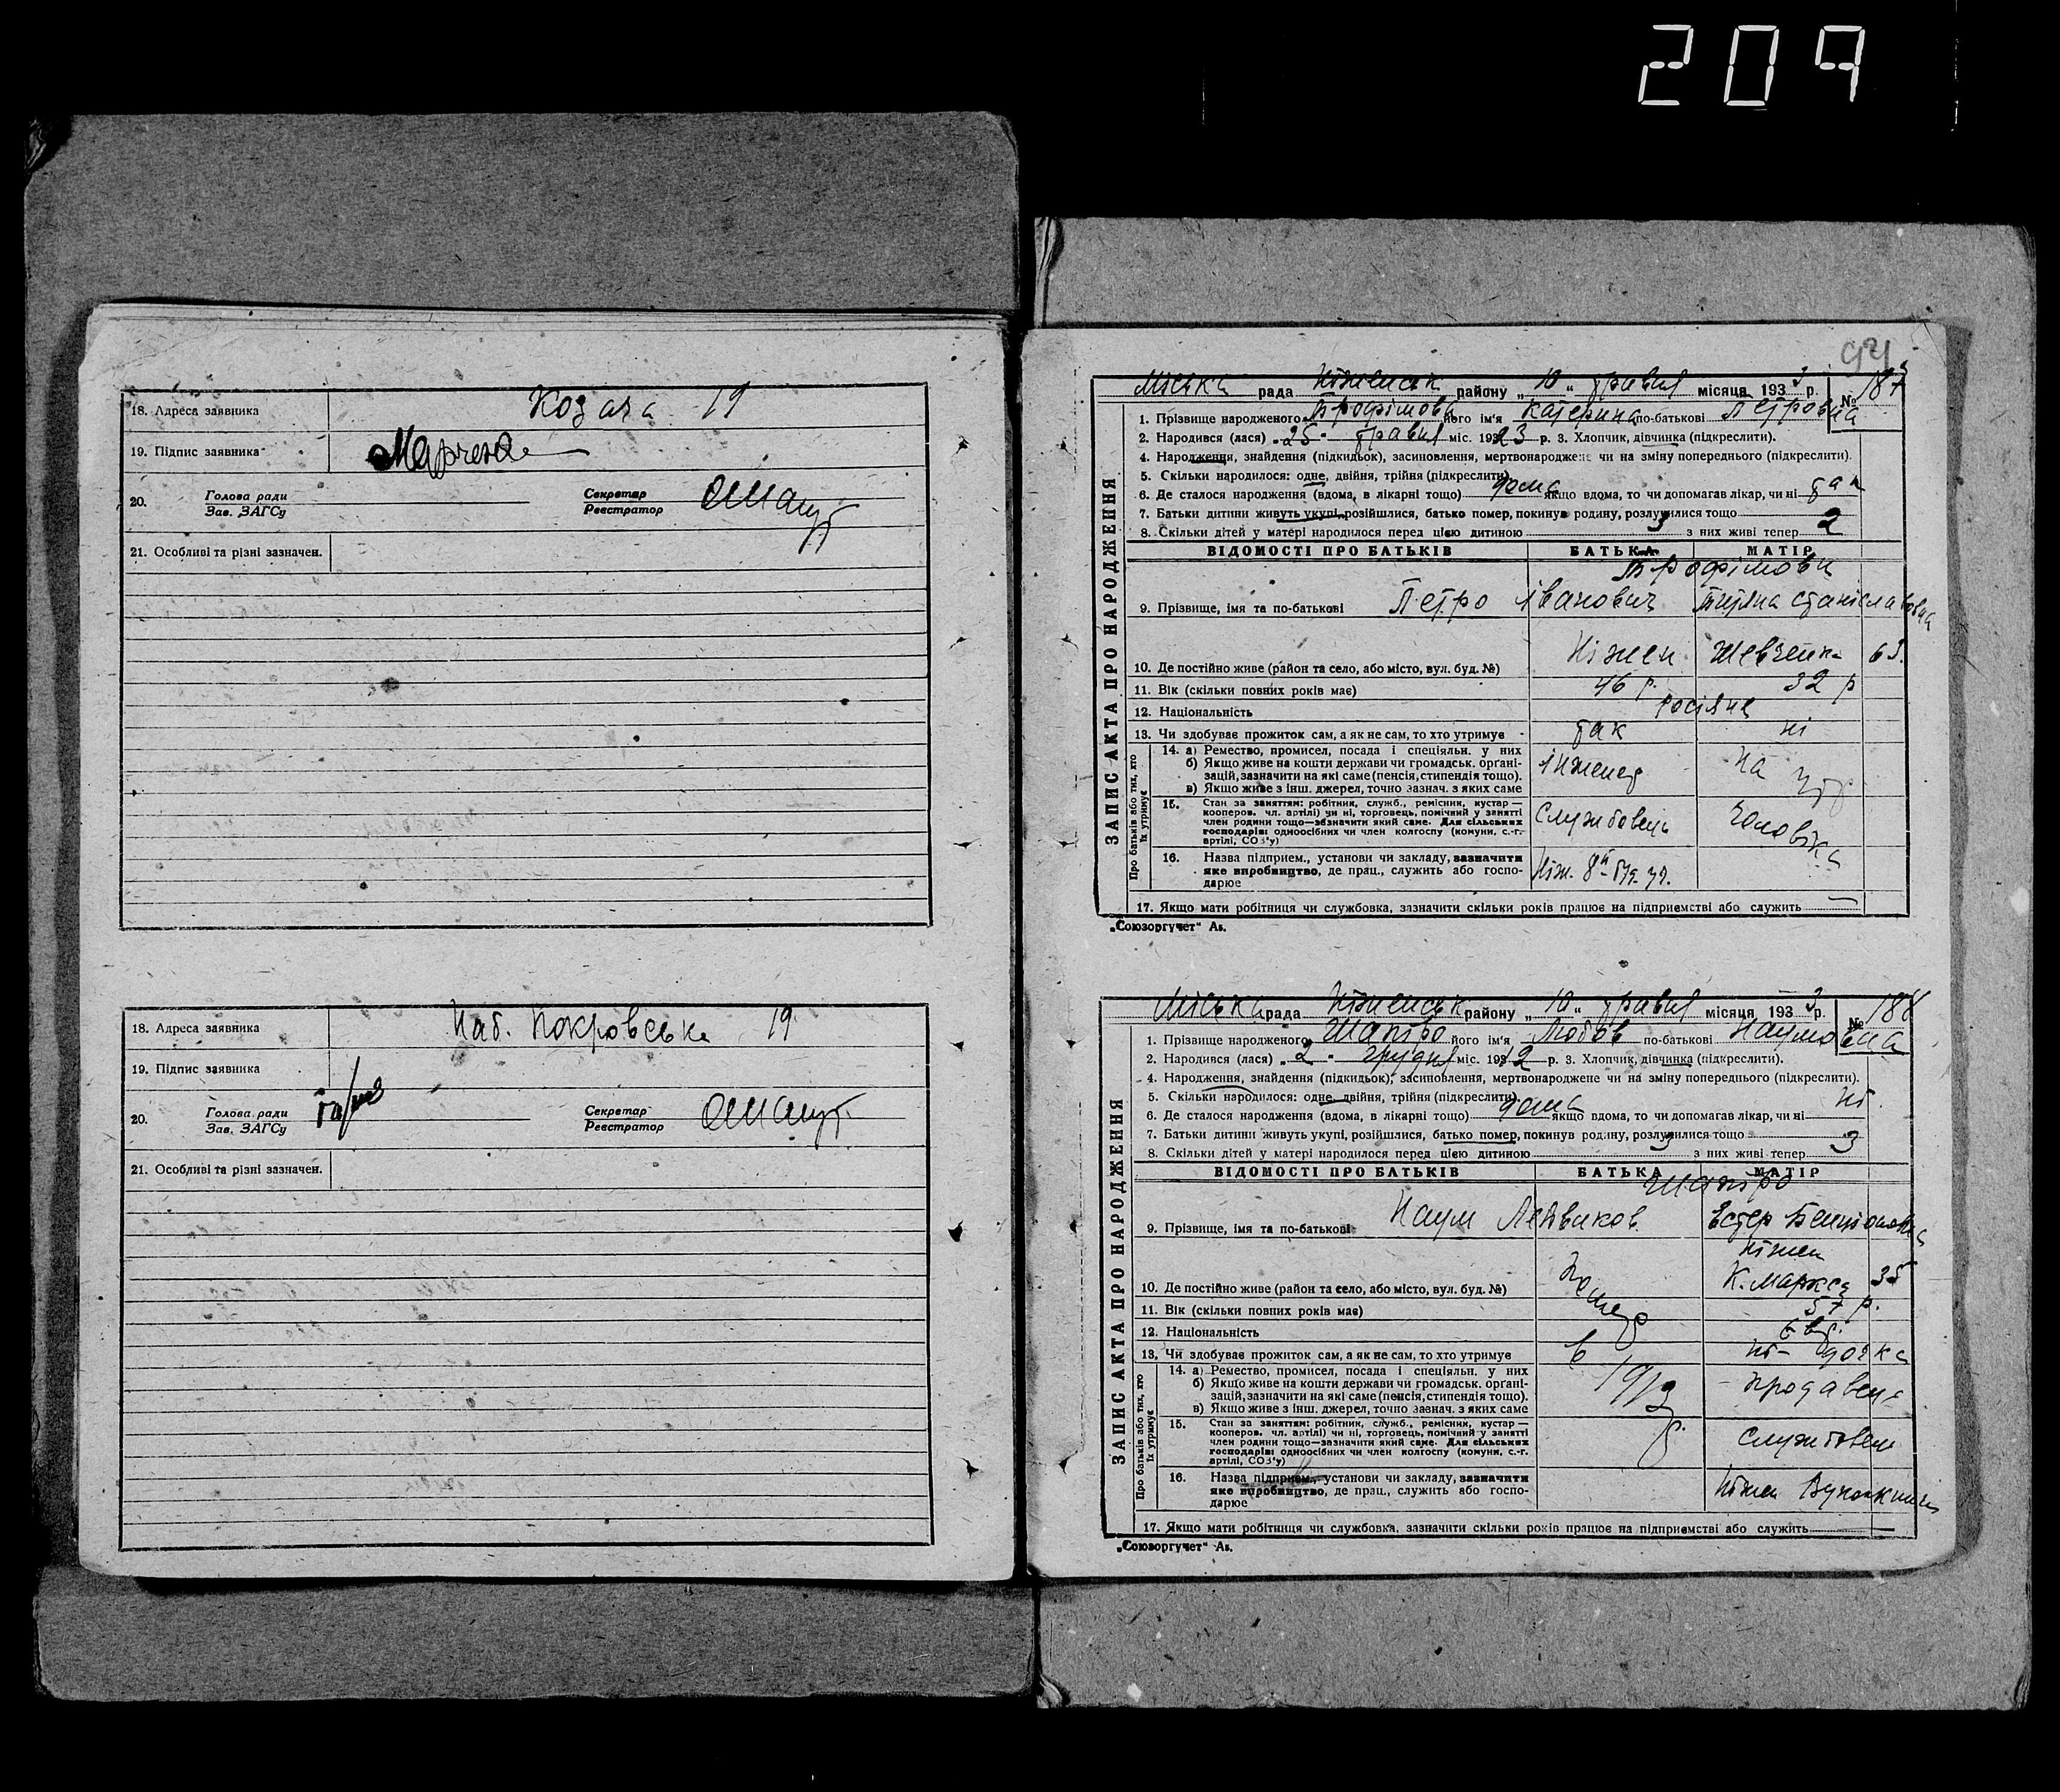 209
18. Адреса заявника Козача 19
19. Підпис заявника
20. Голова ради
Зав. ЗАГСу
Секретар
Реєстратор
21. Особливі та різні зазначен.
18. Адреса заявника Наб. Покровська 19
19. Підпис заявника
20. Голова ради
Зав. ЗАГСу
Секретар
Реєстратор
21. Особливі та різні зазначен.
94
ЗАПИС АКТА ПРО НАРОДЖЕННЯ
Міська рада Ніженськ району „ 10 “ травня місяця 193 3 р. № 187
1. Прізвище народженого Трофімова його ім'я Катерина по-батькові Петровна
2. Народився (лася) „ 25 " травня міс. 1923 р. 3. Хлопчик, дівчинка (підкреслити).
4. Народження, знайдення (підкидьок), засиновлення, мертвонароджене чи на зміну попереднього (підкреслити).
5. Скільки народилося: одне, двійня, трійня (підкреслити)
6. Де сталося народження (вдома, в лікарні тощо) дома якщо вдома, то чи допомагав лікар, чи ні так
7. Батьки дитини живуть укупі, розійшлися, батько помер, покинув родину, розлучилися тощо
8. Скільки дітей у матері народилося перед цією дитиною 3 з них живі тепер 2
ВІДОМОСТІ ПРО БАТЬКІВ БАТЬКА МАТІР
Трофімови
9. Прізвище, імя та по-батькові Петро Іванович Тетяна Станіславовна
10. Де постійно живе (район та село, або місто, вул. буд. №) Ніжен Шевченка 63.
11. Вік (скільки повних років має) 46 р. 32 р
12. Національність росіяне
13. Чи здобуває прожиток сам, а як не сам, то хто утримує так ні
Про батьків або тих, хто їх утримує
14. а) Ремество, промисел, посада і спеціяльн. у них
б) Якщо живе на кошти держави чи громадськ. органі-
зацій, зазначити на які саме (пенсія, стипендія тощо).
в) Якщо живе з інш. джерел, точно зазнач. з яких саме
інженер на
15. Стан за заняттям: робітник, служб., ремісник, кустар —
кооперов. чл. артілі) чи ні, торговець, помічний у занятті
член родини тощо—зазначити який саме. Для сільських
господарів: одноосібних чи член колгоспу (комуни, с.-г.
артілі, СОЗ'у)
Службовець чоловіка
16. Назва підприєм., установи чи закладу, зазначити
яке виробництво, де прац., служить або госпо-
дарює
17. Якщо мати робітниця чи службовка, зазначити скільки років працює на підприємстві або служить —
„Союзоргучет“ Аз.
ЗАПИС АКТА ПРО НАРОДЖЕННЯ
Міська рада Ніженськ району „ 10 “ травня місяця 193 3 р. № 188
1. Прізвище народженого Шапіро його ім'я Любов по-батькові Наумовна
2. Народився (лася) „ 2 " грудня міс. 1912 р. 3. Хлопчик, дівчинка (підкреслити).
4. Народження, знайдення (підкидьок), засиновлення, мертвонароджене чи на зміну попереднього (підкреслити).
5. Скільки народилося: одне, двійня, трійня (підкреслити)
6. Де сталося народження (вдома, в лікарні тощо) дома якщо вдома, то чи допомагав лікар, чи ні ні
7. Батьки дитини живуть укупі, розійшлися, батько помер, покинув родину, розлучилися тощо
8. Скільки дітей у матері народилося перед цією дитиною 3 з них живі тепер 3
ВІДОМОСТІ ПРО БАТЬКІВ БАТЬКА МАТІР
Шапіро
9. Прізвище, імя та по-батькові Наум Лейвиков Естер Бенціоновна
Ніжен
10. Де постійно живе (район та село, або місто, вул. буд. №) К. Маркса 35
11. Вік (скільки повних років має) 57 р.
12. Національність євр.
13. Чи здобуває прожиток сам, а як не сам, то хто утримує ні - дочка
Про батьків або тих, хто їх утримує
14. а) Ремество, промисел, посада і спеціяльн. у них
б) Якщо живе на кошти держави чи громадськ. органі-
зацій, зазначити на які саме (пенсія, стипендія тощо).
в) Якщо живе з інш. джерел, точно зазнач. з яких саме
помер в 1913 р. продавець
15. Стан за заняттям: робітник, служб., ремісник, кустар —
кооперов. чл. артілі) чи ні, торговець, помічний у занятті
член родини тощо—зазначити який саме. Для сільських
господарів: одноосібних чи член колгоспу (комуни, с.-г.
артілі, СОЗ'у)
службовець
16. Назва підприєм., установи чи закладу, зазначити
яке виробництво, де прац., служить або госпо-
дарює
Ніжен
17. Якщо мати робітниця чи службовка, зазначити скільки років працює на підприємстві або служить
„Союзоргучет“ Аз.